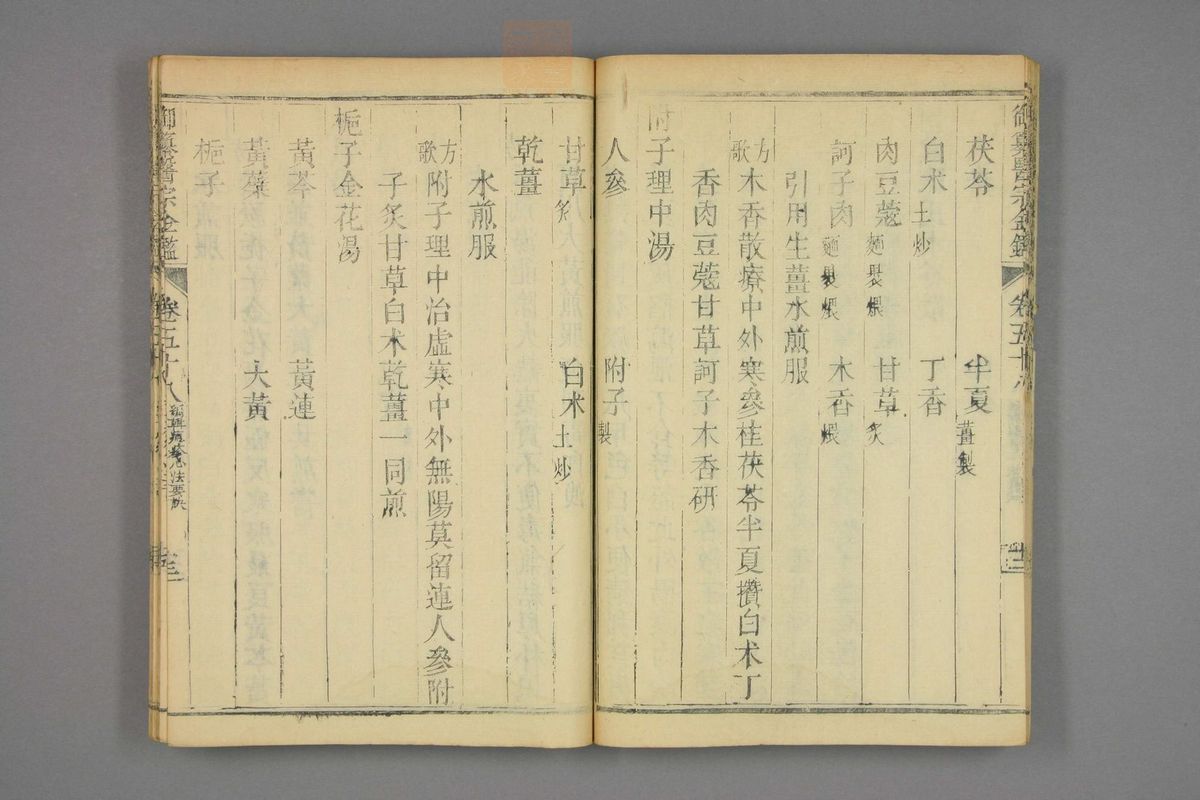 茯苓 半夏薑製
白术土炒 丁香
肉豆蔻麵裂煨 甘草炙
訶子肉麵裂煨 木香煨
引用生薑水煎服
方歌 木香散療中外寒參桂茯苓半夏攢白术丁
香肉豆蔻甘草訶子木香研
附子理中湯
人參 附子製
甘草炙 白术土炒
乾薑
水煎服
方歌 附子理中治虛寒中外無陽莫留連人參附
子炙甘草白术乾薑一同煎
梔子金花湯
黃芩 黃連
黃蘗 大黃
梔子
御纂醫宗金鑑 卷五十八